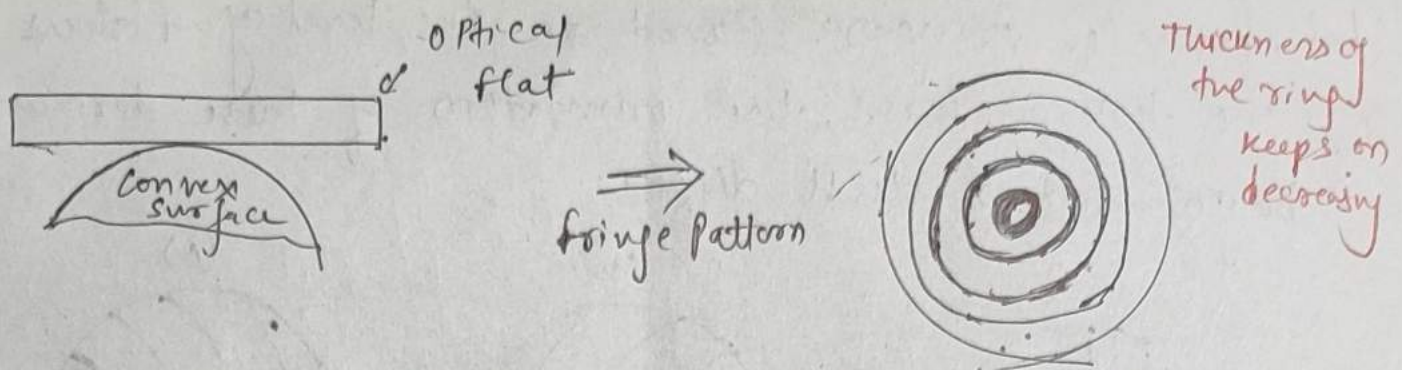 optical
flat
convex
surface
fringe pattern
Thickness of
the ring
keeps on
decreasing